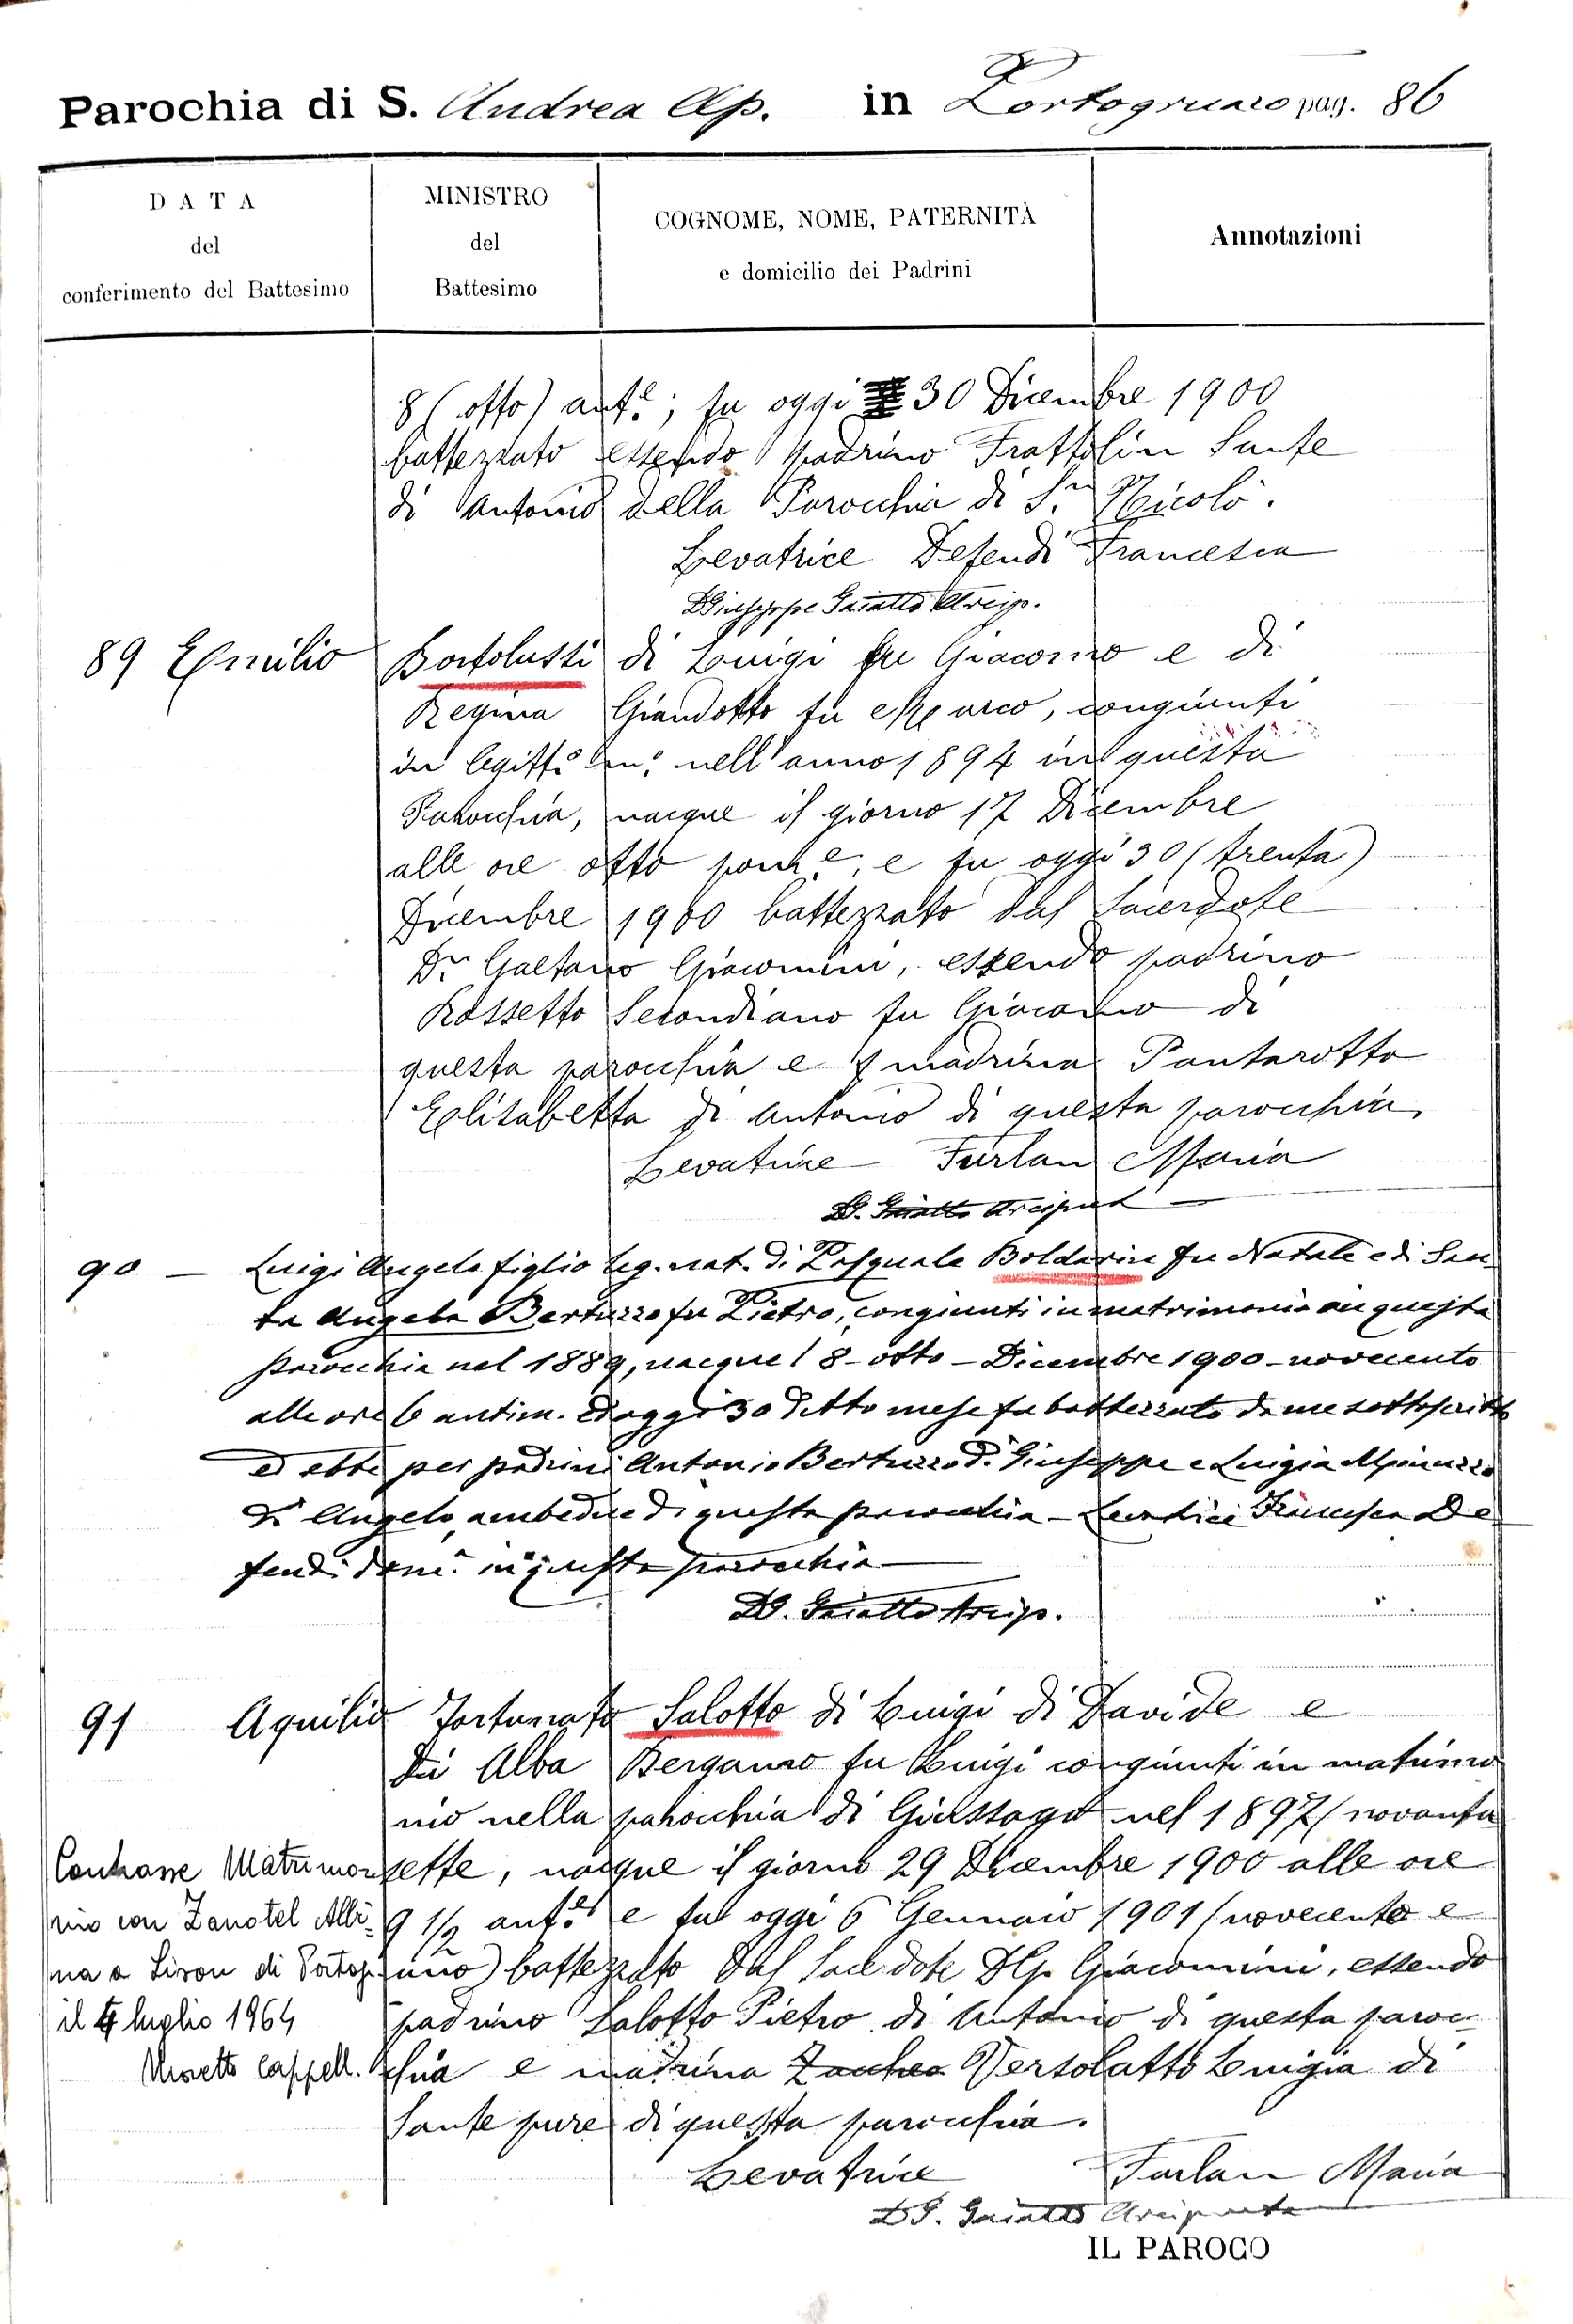 Parochia di S. Andrea Ap. in Portogruaro pag. 86
DATA
del
conferimento del Battesimo
MINISTRO
del
Battesimo
COGNOME, NOME, PATERNITÀ
e domicilio dei Padrini
Annotazioni
8 (otto) ant.e; fu oggi 30 Dicembre 1900
battezzato essendo padrino Frattolin Sante
di Antonio della Parocchia di S.n Nicolò.
Levatrice Defendi Francesca
D Giuseppe Gaiatto Arcip.
89 Emilio Bortolussi di Luigi fu Giacomo e di
Regina Giandotto fu Marco, congiunti
in legitt.o nell'anno 1894 in questa
Parocchia, nacque il giorno 17 Dicembre
alle ore otto pom.e, e fu oggi 30 (trenta)
Dicembre 1900 battezzato dal Sacerdote
D.n Gaetano Giacomini, essendo padrino
Rossetto Secondiano fu Giacomo di
questa parocchia e madrina Pantarotto
Elisabetta di Antonio di questa parocchia.
Levatrice Furlan Maria
D. Gaiatto Arciprete
90 — Luigi Angelo figlio leg. nat. di Pasquale Boldarin fu Natale e di San
ta Angela Bertuzzo fu Pietro, congiunti in matrimonio in questa
parocchia nel 1889, nacque l 8 - otto - Dicembre 1900 - novecento
alle ore 6 antim. ed oggi 30 detto mese fu battezzato da me sottoscritto
ed ebbe per padrini Antonio Bertuzzo di Giuseppe e Luigia
di Angelo, ambedue di questa parocchia - Levatrice Francesca De
fendi dom.a in questa parocchia
D. Gaiatto Arcip.
91 Aquilio Fortunato Salotto di Luigi di Davide e
di Alba Bergamo fu Luigi congiunti in matrimo
nio nella parocchia di Giussago nel 1897 (novanta
sette, nacque il giorno 29 Dicembre 1900 alle ore
9 1/2 ant.e e fu oggi 6 Gennaio 1901 (novecento e
uno) battezzato dal Sacerdote D G. Giacomini, essendo
padrino Salotto Pietro di Antonio di questa paroc
chia e madrina Zaccheo Versolatto Luigia di
Sante pure di questa parocchia.
Levatrice Furlan Maria
D G. Gaiatto Arciprete
Contrasse Matrimo
nio con Zanotel Albi-
na a Sison di Portog.
il 4 luglio 1964
Moretto Cappell.
IL PAROCO